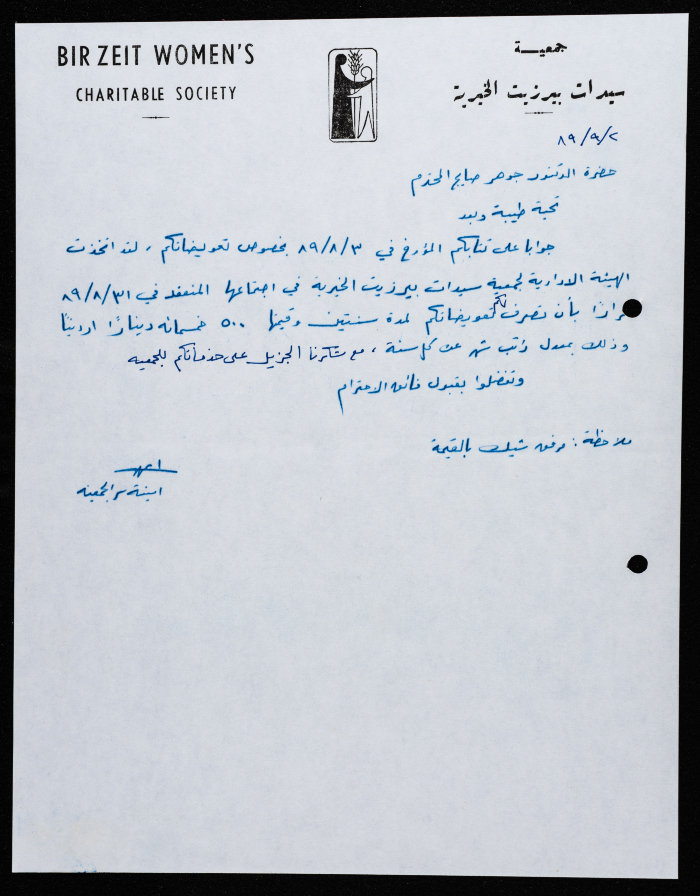 BIR ZEIT WOMEN'S
CHARITABLE SOCIETY
جمعيـــة
سيدات بيرزيت الخيرية
٨٩/٩/٢
حضرة الدكتور جوهر صايج المحترم
تحية طيبة وبعد
جوابا على كتابكم المؤرخ في ٨٩/٨/٣ بخصوص تعويضاتكم، لقد اتخذت
الهيئة الادارية لجمعية سيدات بيرزيت الخيرية في اجتماعها المنعقد في ٨٩/٨/٣١
قرارًا بأن تصرف لكم تعويضاتكم لمدة سنتين وقيمتها ٥٠٠ خمسمائة دينارًا اردنيًا
وذلك بمعدل راتب شهر عن كل سنة، مع شكرنا الجزيل على خدماتكم للجمعية
وتفضلوا بقبول فائق الاحترام
ملاحظة: مرفق شيك بالقيمة
امينة سر الجمعية